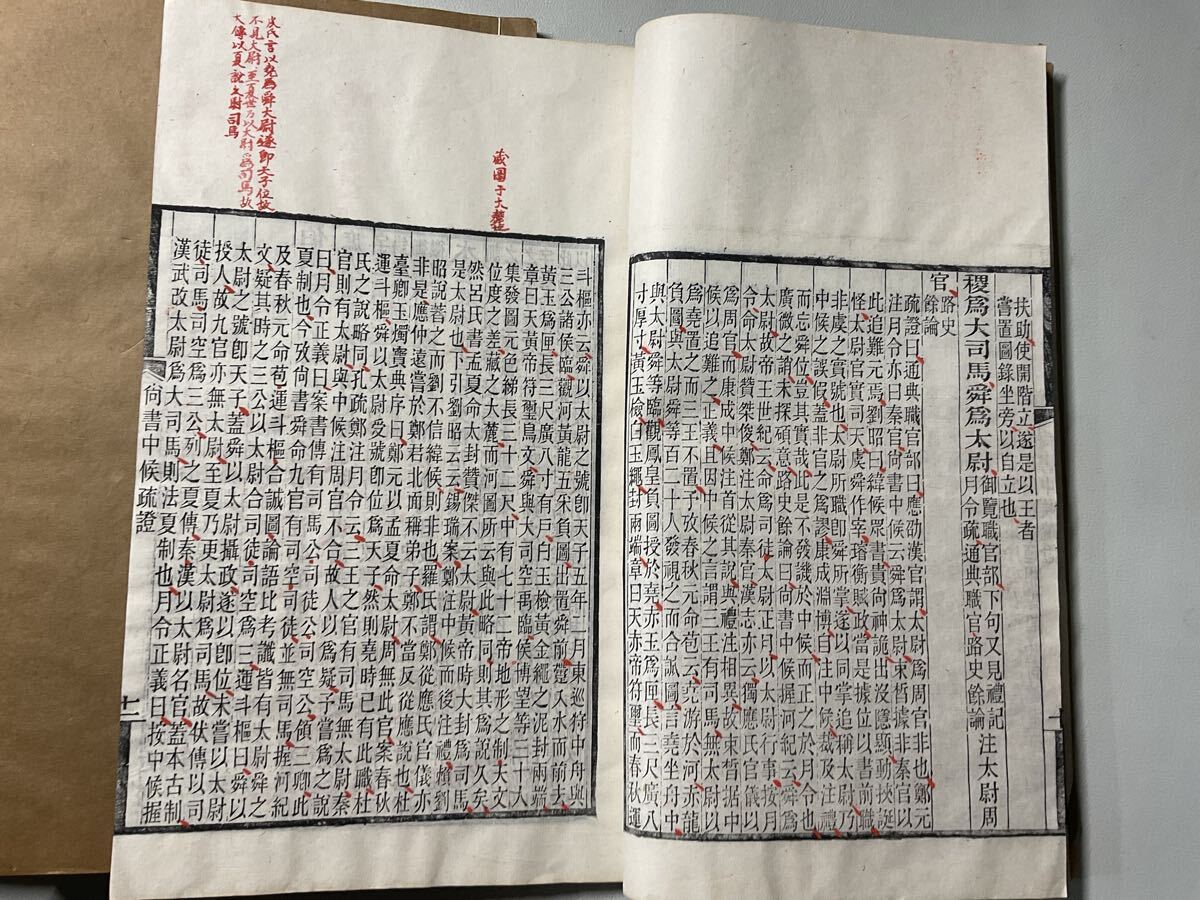 扶助使開階立遂是以王者
嘗置圖錄坐旁以自立也
稷為大司馬舜為太尉御覽職官部下句又見禮記月令疏通典職官路史餘論注太尉周
官路史餘論
疏證曰通典職官部曰應劭漢官謂太尉為周官非也鄭元
注月令亦曰秦官尚書中候云舜為太尉束皙據非秦官以
此追難元焉劉昭曰緯候眾書貴尚神詭出沒隱顯動挾誕
怪太尉官實司天虞舜作宰璿衡賦政當是據位以書前職
非虞之實號也太尉所職即舜所掌遂以同掌追稱太尉乃
中候之誤假蓋非官之為謬康成淵博自注中候裁及注禮
而忘舜位豈其實哉此是不發譏於中候而正之於月令也
廣微之誚未探碩意路史餘論曰尚書中候握河紀云舜為
太尉故帝王世紀云命為司徒太尉正月以太尉行事按月
令命太尉贊桀俊鄭注太尉秦官漢志亦云獨應氏官儀以
為周官而康成中候注首從其說與禮注相異故束皙据中
候以追難之正義且因中候之言謂三王有司馬無太尉以
為堯置之而三王不置予攷春秋元命苞云堯游於河赤龍
負圖與太尉舜等百二十人發視之而合誠圖言堯坐舟中
與太尉舜等臨觀鳳皇負圖授於堯赤玉為匣長三尺廣八
寸厚寸黃玉檢白玉繩封兩端章曰天赤帝符璽而春秋運
藏圖于大麓
斗樞亦云舜以太尉之號即天子五年二月東巡狩中舟與
三公諸侯臨觀河黃龍五采負圖出置舜前入水而前去
黃玉為匣長三尺廣八寸有戶白玉檢黃金繩之泥封兩端
章曰天黃帝符璽鳥文舜與大司空禹臨侯博望等三十人
集發圖元色綈長三十二尺中有七十二帝地形之制天文
位度之差藏之大麓而河圖所云與此略同則其為說久矣
然呂氏書孟夏命太封贊傑不云太尉黃帝時大封為司馬
是太尉也下引劉昭云云錫瑞案鄭注中候而後注禮檢劉
昭說荅之而劉不信緯候則非也羅氏謂鄭從應氏官儀亦
非是應仲遠嘗於鄭君北面稱弟子鄭不當反從應說也杜
臺卿玉獨寶典序曰鄭元以孟夏命太尉周無此官案春秋
運斗樞舜以太尉受號即位為天子然則堯時已有此職杜
氏之說略同孔疏鄭注月令云三王之官有司馬無太尉秦
官則有太尉與中候注周官不合故人為疑予嘗為之說
曰月令正義曰案書傳有司馬公司徒公司空公領三卿此
夏制也今攷尚書舜命九官有司空司徒並無司馬握河紀
及春秋元命苞運斗樞合誠圖論語比考讖皆有太尉舜之
文疑其時之三公以太尉合司徒司空為三運斗樞曰舜以
太尉之號即天子蓋舜以太尉攝政遂以即位未嘗以太尉
授人故九官亦無太尉至夏乃更太尉為司馬故伏傳以司
徒司馬司空為三公列之夏傳秦漢以太尉名官蓋本古制
漢武改太尉為大司馬則法夏制也月令正義曰按中候握
皮氏言以堯為舜大尉遂即天子位故
不見大尉至夏世乃以大尉為司馬故
大傳以夏說大尉司馬
尚書中候疏證
十一